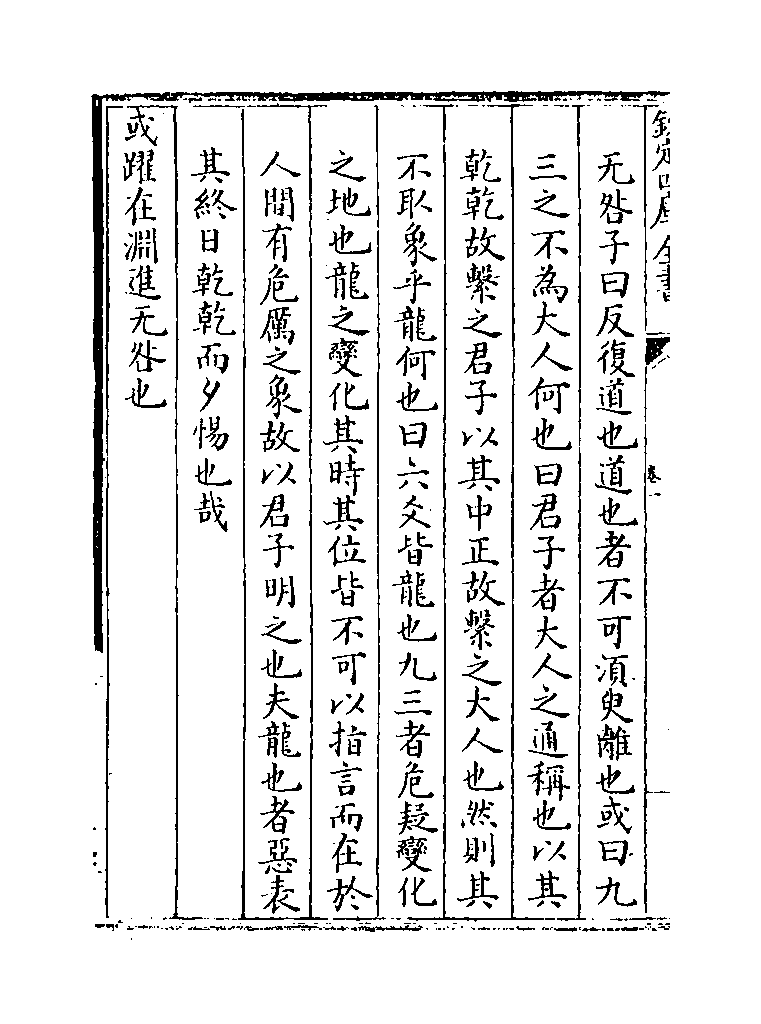 欽定四庫全書
卷一
无咎子曰反復道也道也者不可湏臾離也或曰九
三之不為大人何也曰君子者大人之通稱也以其
乾乾故繫之君子以其中正故繫之大人也然則其
不取象乎龍何也曰六爻皆龍也九三者危疑變化
之地也龍之變化其時其位皆不可以指言而在於
人間有危厲之象故以君子明之也夫龍也者惡表
其終日乾乾而夕惕也哉
或躍在淵進无咎也